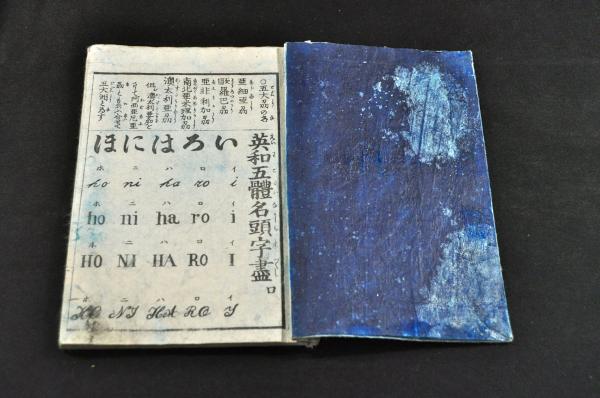 英和五體名頭字盡
〇五大洲の名
亜細亜洲
欧羅巴洲
亜非利加洲
南北亜米理加洲
澳太利亜洲
五大洲となす
いろはにほ
イ ロ ハ ニ ホ
i ro ha ni ho
イ ロ ハ ニ ホ
i ro ha ni ho
イ ロ ハ ニ ホ
I RO HA NI HO
イ ロ ハ ニ ホ
I RO HA NI HO